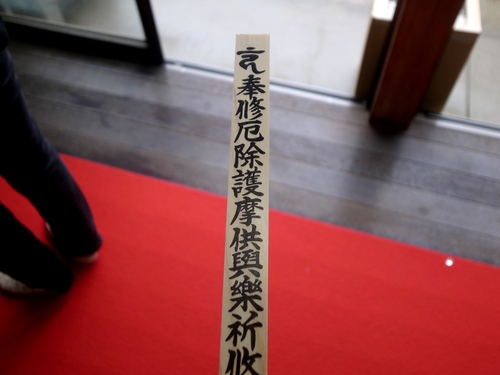 奉修厄除護摩供與樂祈攸